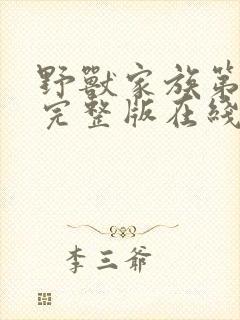 野獸家族第
完整版在綫
李三爺